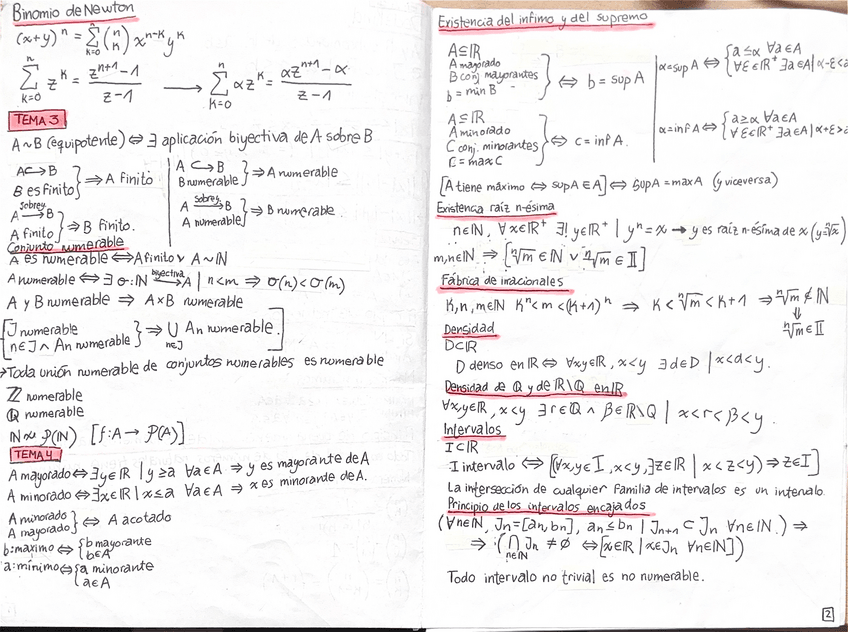 Binomio de Newton
(x+y)ⁿ = Σ_{k=0}^{n} (n k) x^{n-k} y^k
Σ_{k=0}^{n} z^k = (z^{n+1} - 1)/(z - 1) → Σ_{k=0}^{n} αz^k = (αz^{n+1} - α)/(z - 1)
TEMA 3
A ~ B (equipotente) ⇔ ∃ aplicación biyectiva de A sobre B
A ↪ B
B es finito } ⇒ A finito
A ↪ B
B numerable } ⇒ A numerable
A —sobrey.→ B
A finito } ⇒ B finito.
A —sobrey.→ B
A numerable } ⇒ B numerable
Conjunto numerable
A es numerable ⇔ A finito ∨ A ~ ℕ
A numerable ⇔ ∃ σ: ℕ —biyectiva→ A | n<m ⇒ σ(n) < σ(m)
A y B numerable ⇒ A×B numerable
[J numerable
n∈J ∧ An numerable } ⇒ ⋃_{n∈J} An numerable.]
→ Toda unión numerable de conjuntos numerables es numerable
ℤ numerable
ℚ numerable
ℕ ≁ 𝒫(ℕ) [f: A → 𝒫(A)]
TEMA 4
A mayorado ⇔ ∃y∈ℝ | y ≥ a ∀a∈A ⇒ y es mayorante de A
A minorado ⇔ ∃x∈ℝ | x ≤ a ∀a∈A ⇒ x es minorante de A.
A minorado
A mayorado } ⇔ A acotado
b: máximo ⇔ { b mayorante
b∈A
a: mínimo ⇔ { a minorante
a∈A
Existencia del ínfimo y del supremo
A⊆ℝ
A mayorado
B conj. mayorantes
b = min B } ⇔ b = sup A
α = sup A ⇔ { a ≤ α ∀a∈A
∀ε∈ℝ⁺ ∃a∈A | α-ε<a
A⊆ℝ
A minorado
C conj. minorantes
c = max C } ⇔ c = inf A.
α = inf A ⇔ { a ≥ α ∀a∈A
∀ε∈ℝ⁺ ∃a∈A | α+ε>a
[A tiene máximo ⇔ sup A ∈ A] ⇔ sup A = max A (y viceversa)
Existencia raíz n-ésima
n∈ℕ, ∀x∈ℝ⁺ ∃! y∈ℝ⁺ | yⁿ = x → y es raíz n-ésima de x (y=ⁿ√x)
m,n∈ℕ ⇒ [ⁿ√m ∈ ℕ ∨ ⁿ√m ∈ 𝕀]
Fábrica de irracionales
K,n,m∈ℕ Kⁿ < m < (K+1)ⁿ ⇒ K < ⁿ√m < K+1 ⇒ ⁿ√m ∉ ℕ
⇓
ⁿ√m ∈ 𝕀
Densidad
D⊂ℝ
D denso en ℝ ⇔ ∀x,y∈ℝ, x<y ∃d∈D | x<d<y.
Densidad de ℚ y de ℝ\ℚ en ℝ
∀x,y∈ℝ, x<y ∃ r∈ℚ ∧ β∈ℝ\ℚ | x<r<β<y.
Intervalos
I⊂ℝ
I intervalo ⇔ [(∀x,y∈I, x<y, ∃z∈ℝ | x<z<y) ⇒ z∈I]
La intersección de cualquier familia de intervalos es un intervalo.
Principio de los intervalos encajados
(∀n∈ℕ, Jn=[an,bn], an ≤ bn | Jn+1 ⊂ Jn ∀n∈ℕ.) ⇒
⇒ (⋂_{n∈ℕ} Jn ≠ ∅ ⇔ [x∈ℝ | x∈Jn ∀n∈ℕ])
Todo intervalo no trivial es no numerable.
2